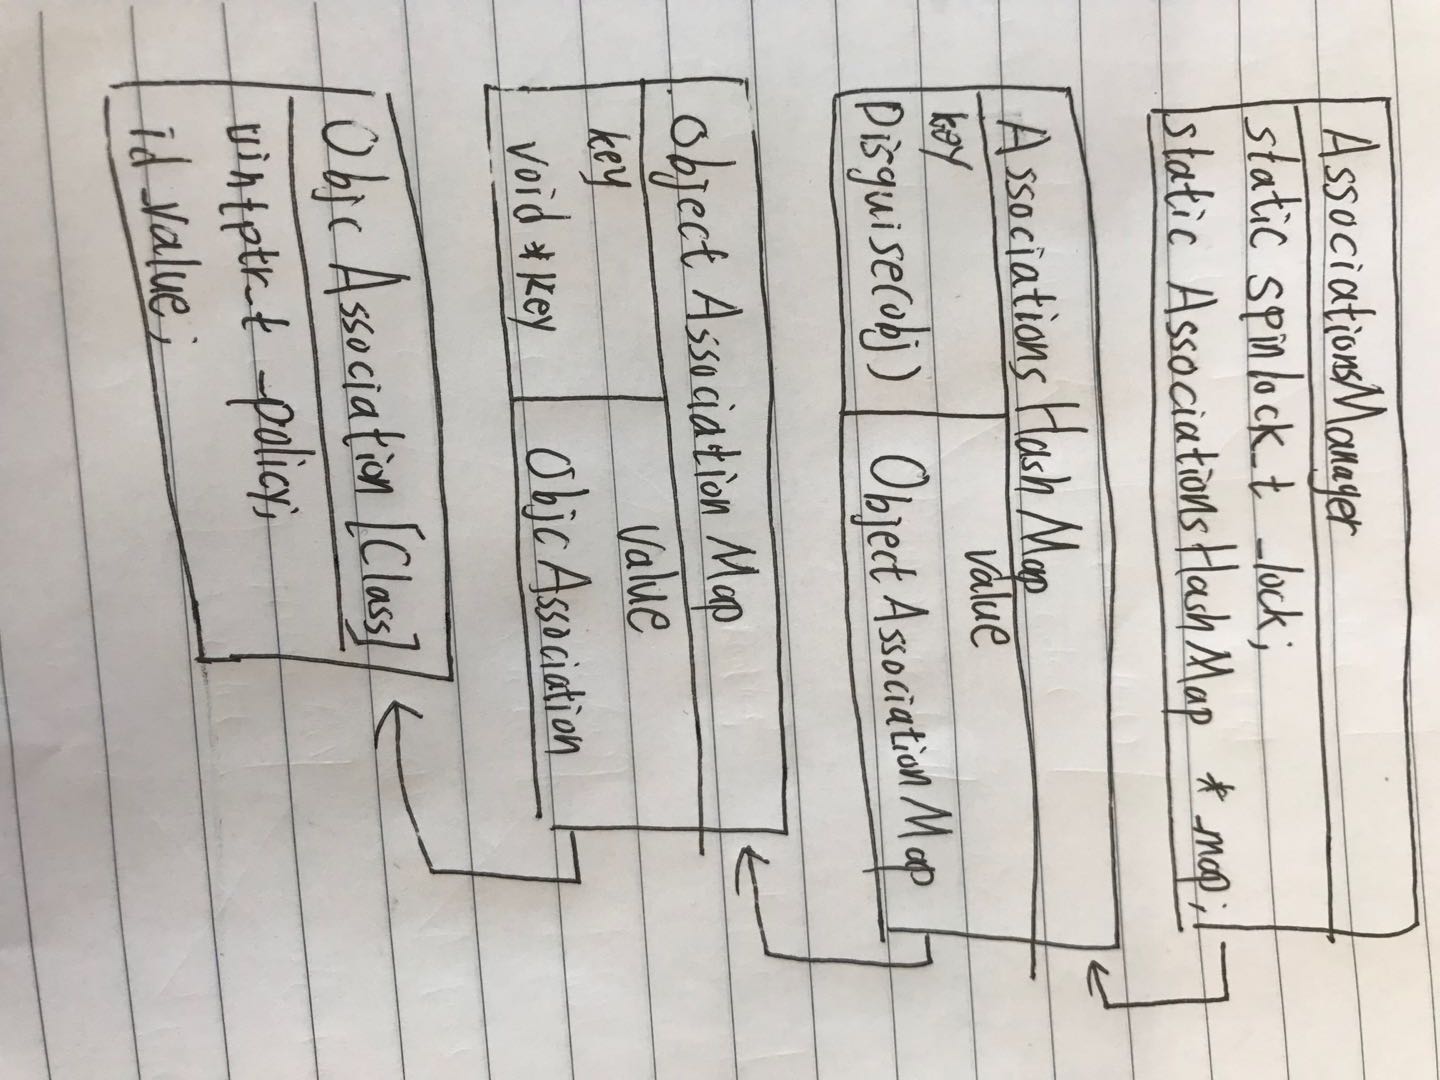 AssociationsManager
static spinlock_t _lock;
static AssociationsHashMap *_map;
Associations HashMap
key value
Disguise(obj) Object Association Map
Object Association Map
key value
void *key Objc Association
Objc Association [Class]
uintptr_t _policy;
id _value;